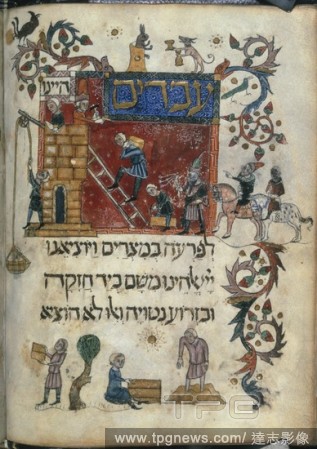 עבדים היינו
לפרעה במצרים ויוציאנו
יי אלהינו משם ביד חזקה
ובזרוע נטויה ואלו לא הוציא
TPG
www.tpgnews.com/ 達志影像